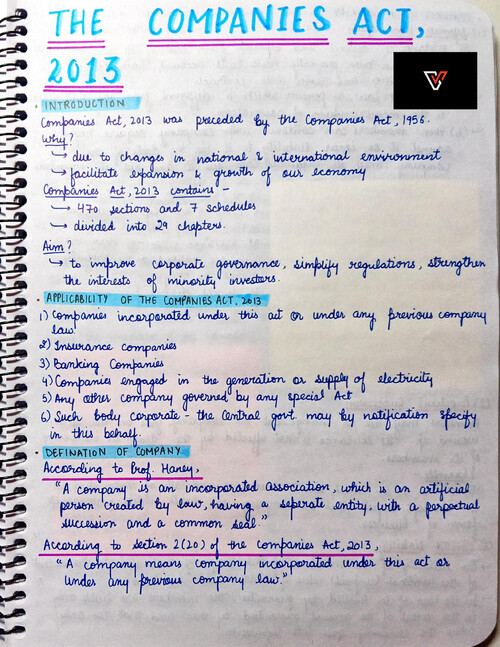 THE COMPANIES ACT,
2013
INTRODUCTION
Companies Act, 2013 was preceded by the Companies Act, 1956.
Why?
→ due to changes in national & international environment
→ facilitate expansion & growth of our economy
Companies Act, 2013 contains -
→ 470 sections and 7 schedules
→ divided into 29 chapters.
Aim?
→ to improve corporate governance, simplify regulations, strengthen
the interests of minority investors.
APPLICABILITY OF THE COMPANIES ACT, 2013
1) Companies incorporated under this act or under any previous company
law
2) Insurance companies
3) Banking Companies
4) Companies engaged in the generation or supply of electricity
5) Any other company governed by any special Act
6) Such body corporate - the Central govt may by notification specify
in this behalf.
DEFINATION OF COMPANY
According to Prof. Haney,
"A company is an incorporated association, which is an artificial
person created by law, having a seperate entity, with a perpetual
succession and a common seal."
According to Section 2(20) of the Companies Act, 2013,
"A company means company incorporated under this act or
under any previous company law."